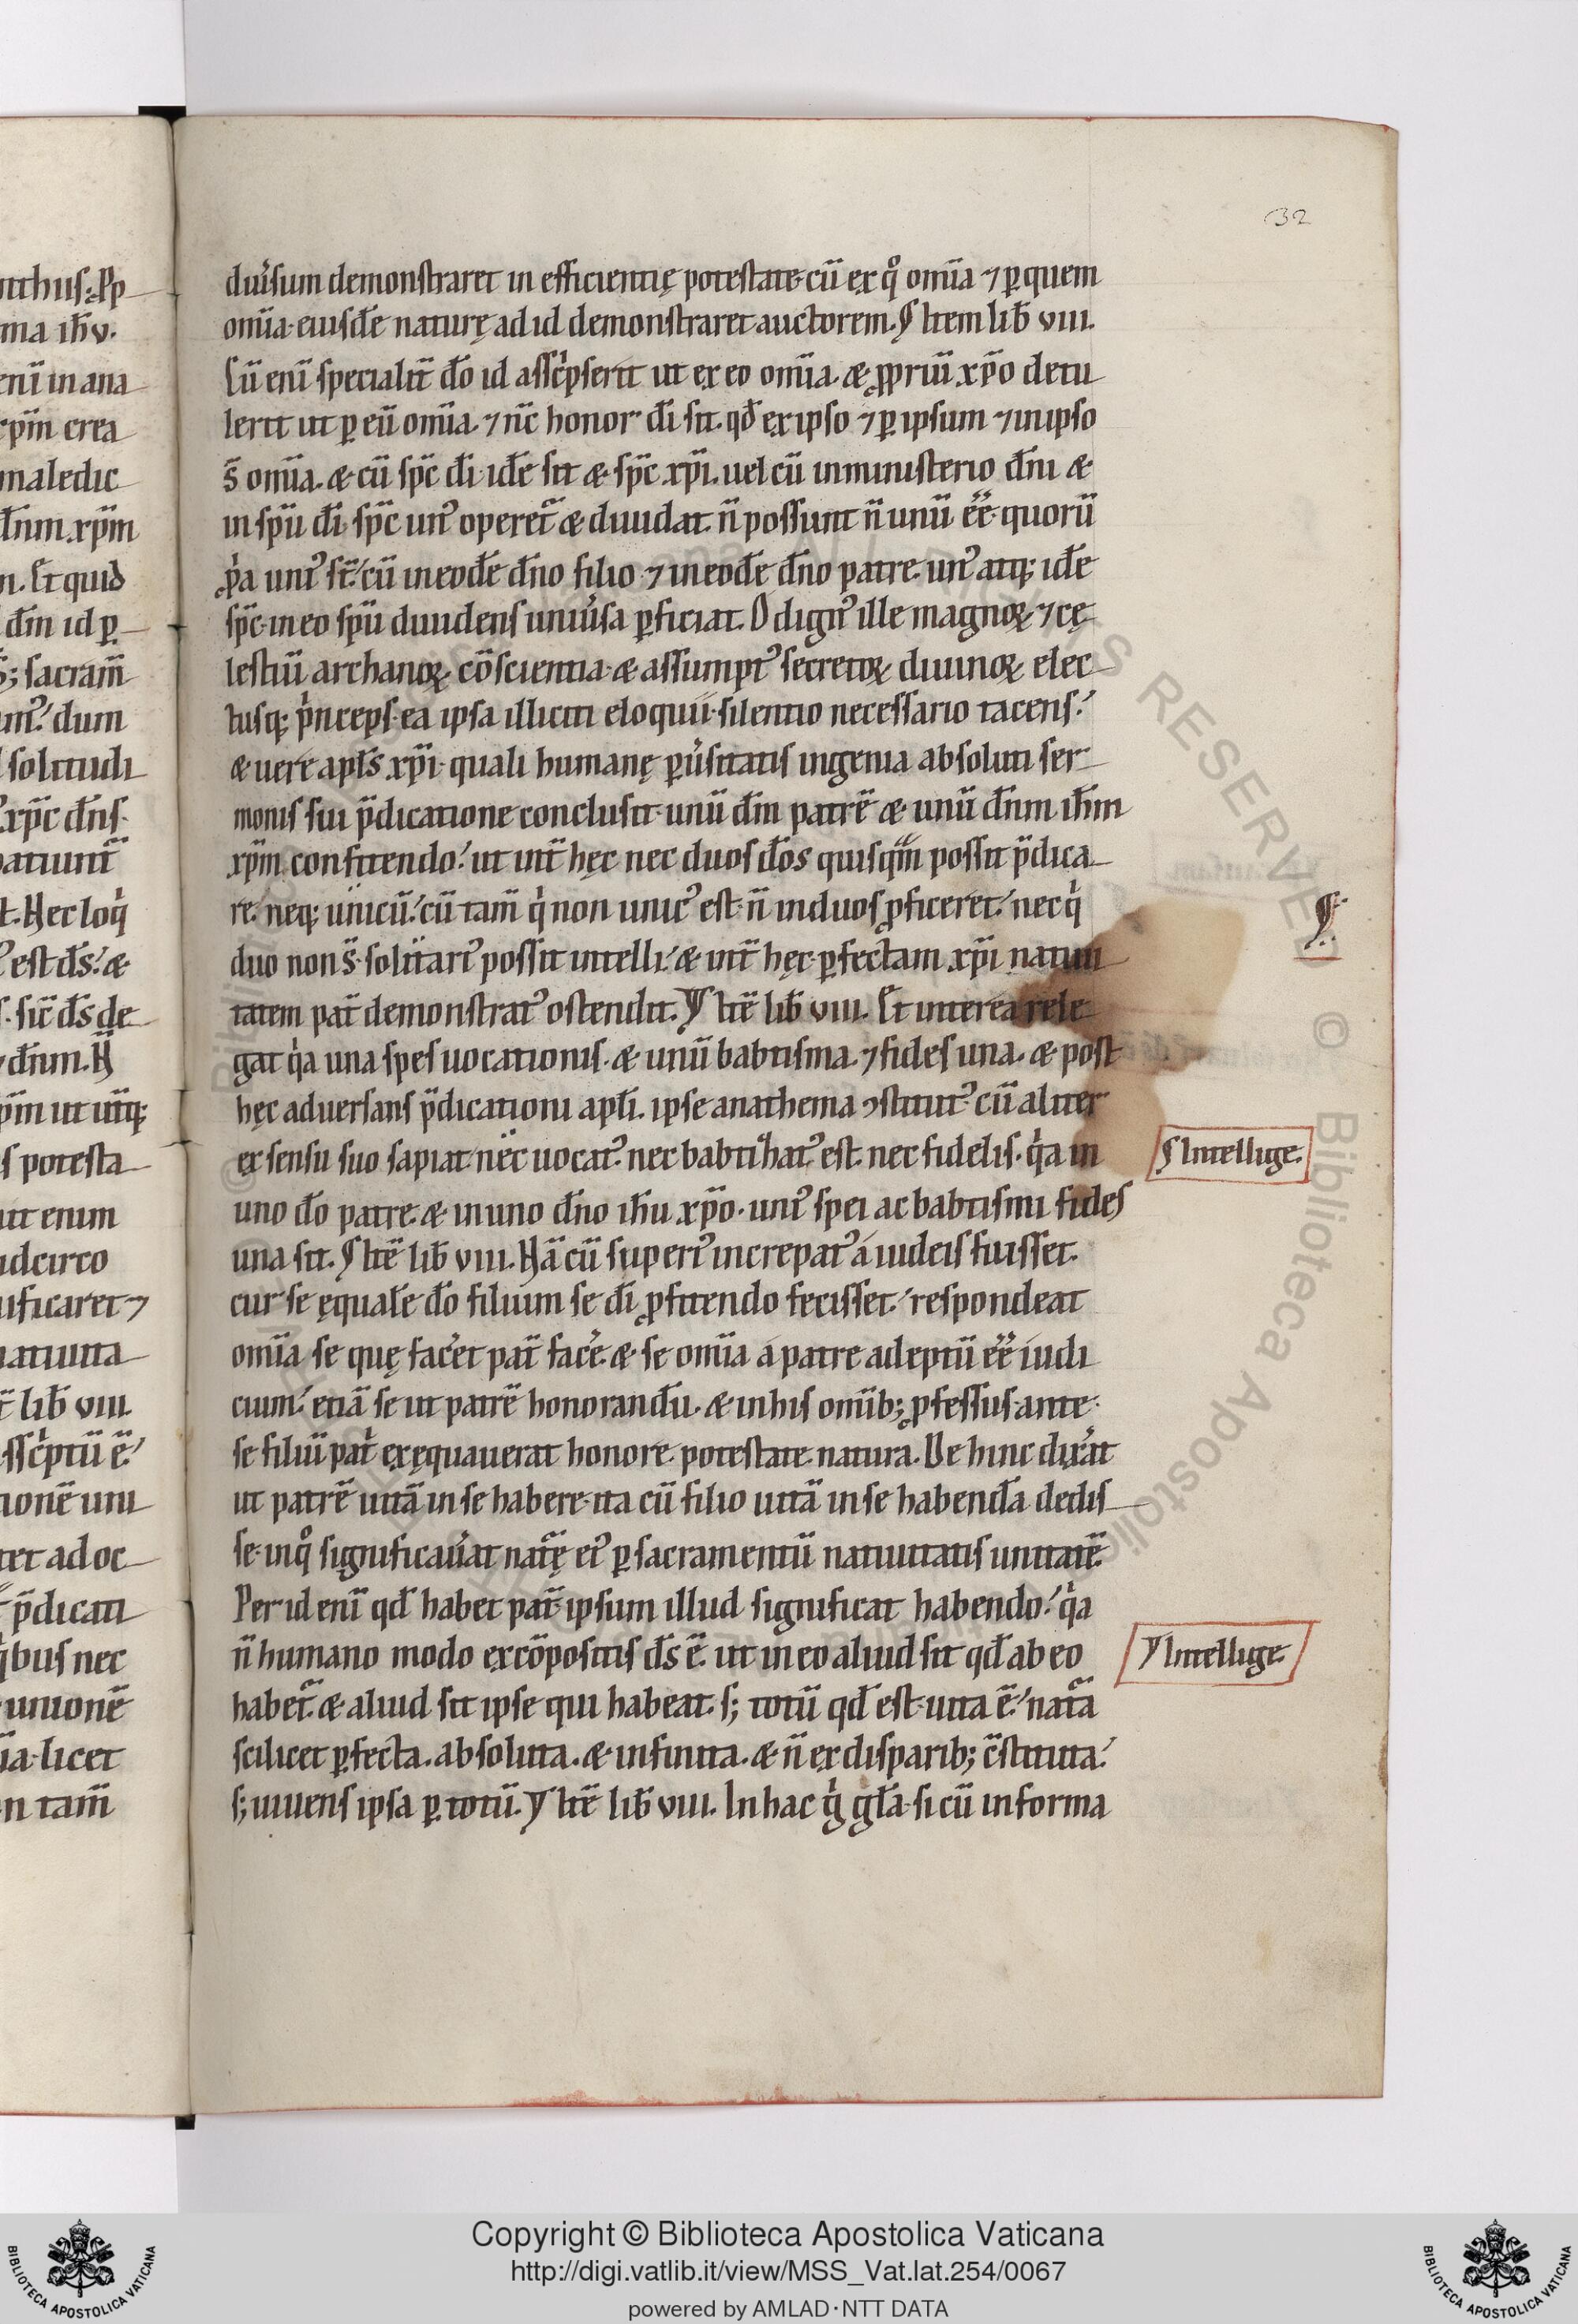 32
du̾sum demonstraret in efficientię potestate·cū ex q̊ om̄ia ⁊ ꝑ quem
om̄ia·eiusdē naturę ad id demonstraret auctorem. Item lib̄ viii.
Cū enī specialit̄ do̅ id assc̓pserit ut ex eo om̄ia· & ꝓpriū xp̄o detu
lerit ut ꝑ eū om̄ia. ⁊ nc̄ honor di̅ sit. qd̅ ex ipso ⁊ ꝑ ipsum ⁊ in ipso
s̄ om̄ia. & cū sp̄c di̅·idē sit & sp̄c xp̄i. uel cū in ministerio dn̄i &
in sp̄u di̅ sp̄c un᷒ operet᷑ & diuidat. n̄ possunt n̄ unū ēē·quorū
ꝓp̓a un᷒ st̄. cū in eodē dn̄o filio ⁊ in eodē dn̄o patre. un᷒ atq; idē
sp̄c in eo sp̄u diuidens uniu̾sa ꝑficiat. O dign᷒ ille magnoꝝ ⁊ cę
lestiū archanoꝝ cōscientia & assumpt᷒ secretoꝝ diuinoꝝ elec
tusq; p̓nceps·ea ipsa illiciti eloquii·silentio necessario tacens.
& uere apl̄s xp̄i·quali humanę ꝑu̾sitatis ingenia absoluti ser
monis sui p̄dicatione conclusit·unū dm̅ patrē & unū dn̄m ih̄m
xp̄m confitendo. ut int̄ hęc nec duos do̅s quisq̄m possit p̄dica
re. neq; unicū. cū tam̄ q̓ non unic᷒ est. n̄ in duos ꝓficeret. nec q̓
duo non s̄·solitari᷒ possit intelli. & int̄ hęc ꝑfectam xp̄i natiui
tatem pat̄ demonstrat᷒ ostendit. Itē lib̄ viii. Et interea rele
gat q̓a una spes uocationis. & unū babtisma. ⁊ fides una. & post
hęc aduersans p̄dicationi apl̄i. ipse anathema ꝯstitut᷒ cū aliter
ex sensu suo sapiat·nec uocat᷒ nec babtizat᷒ est. nec fidelis. q̓a in
uno do̅ patre. & in uno dn̄o ih̄u xp̄o. uni᷒ spei ac babtismi fides
una sit. Itē lib̄ viii. Nā cū superi᷒ increpat᷒ a iudeis fuisset.
cur se ęqualē do̅ filium se di̅ ꝓfitendo fecisset. respondeat
om̄ia se quę fac̾et pat̄ fac̾e. & se om̄ia a patre adeptū ēē iudi
cium. etiā se ut patrē honorandū. & in his omīb; ꝓfessus·ante
se filiū pat̓ exęquauerat honore. potestate. natura. De hinc dix̾at
ut patrē uitā in se habere·ita cū filio uitā in se habendā dedis
se·in q̊ significau̾at nat᷑ę ei᷒ ꝑ sacramentū natiuitatis unitatē.
Per id enī qd̅ habet pat̄·ipsum illud significat habendo. q̓a
n̄ humano modo ex cōpositis ds̅ ē. ut in eo aliud sit qd̅ ab eo
habet᷑. & aliud sit ipse qui habeat. s; totū qd̅ est·uita ē. nat᷑a
scilicet ꝑfecta. absoluta. & infinita. & n̄ ex disparib; c̄stituta.
s; uiuens ipsa ꝑ totū. Itē lib̄ viii. In hac g̓ gl̄a·si cū in forma
Intellige.
Intellige.
tthus. Pp
ma ih̄v.
enī in ana
xp̄m crea
maledic
dn̄m xp̄m
n. Et quid
dm̅ id ꝑ
sacram̄
dum
solitudi
xp̄c dn̄s.
patiunt᷑
t. Hec loq̓
est ds̅. &
sic̄ ds̅ de
dn̄m. H̄
p̄m ut ut̄q;
s potesta
ut enim
idcirco
uificaret ⁊
natiuita
lib̄ viii.
ssc̓ptū ē.
ionē uni
tet ad oc
p̄dicati
q̓bus nec
unionē
ia·licet
n tam̄
Copyright © Biblioteca Apostolica Vaticana
http://digi.vatlib.it/view/MSS_Vat.lat.254/0067
powered by AMLAD·NTT DATA
BIBLIOTECA APOSTOLICA VATICANA
BIBLIOTECA APOSTOLICA VATICANA